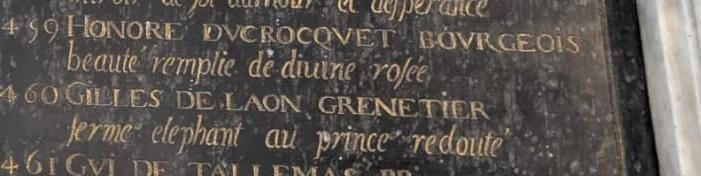 de foy damour et desperance
459 HONORE DVCROCQVET BOVRGEOIS
beauté remplie de diuine rosée
460 GILLES DE LAON GRENETIER
ferme elephant au prince redouté
461 GVI DE TALLEMAS